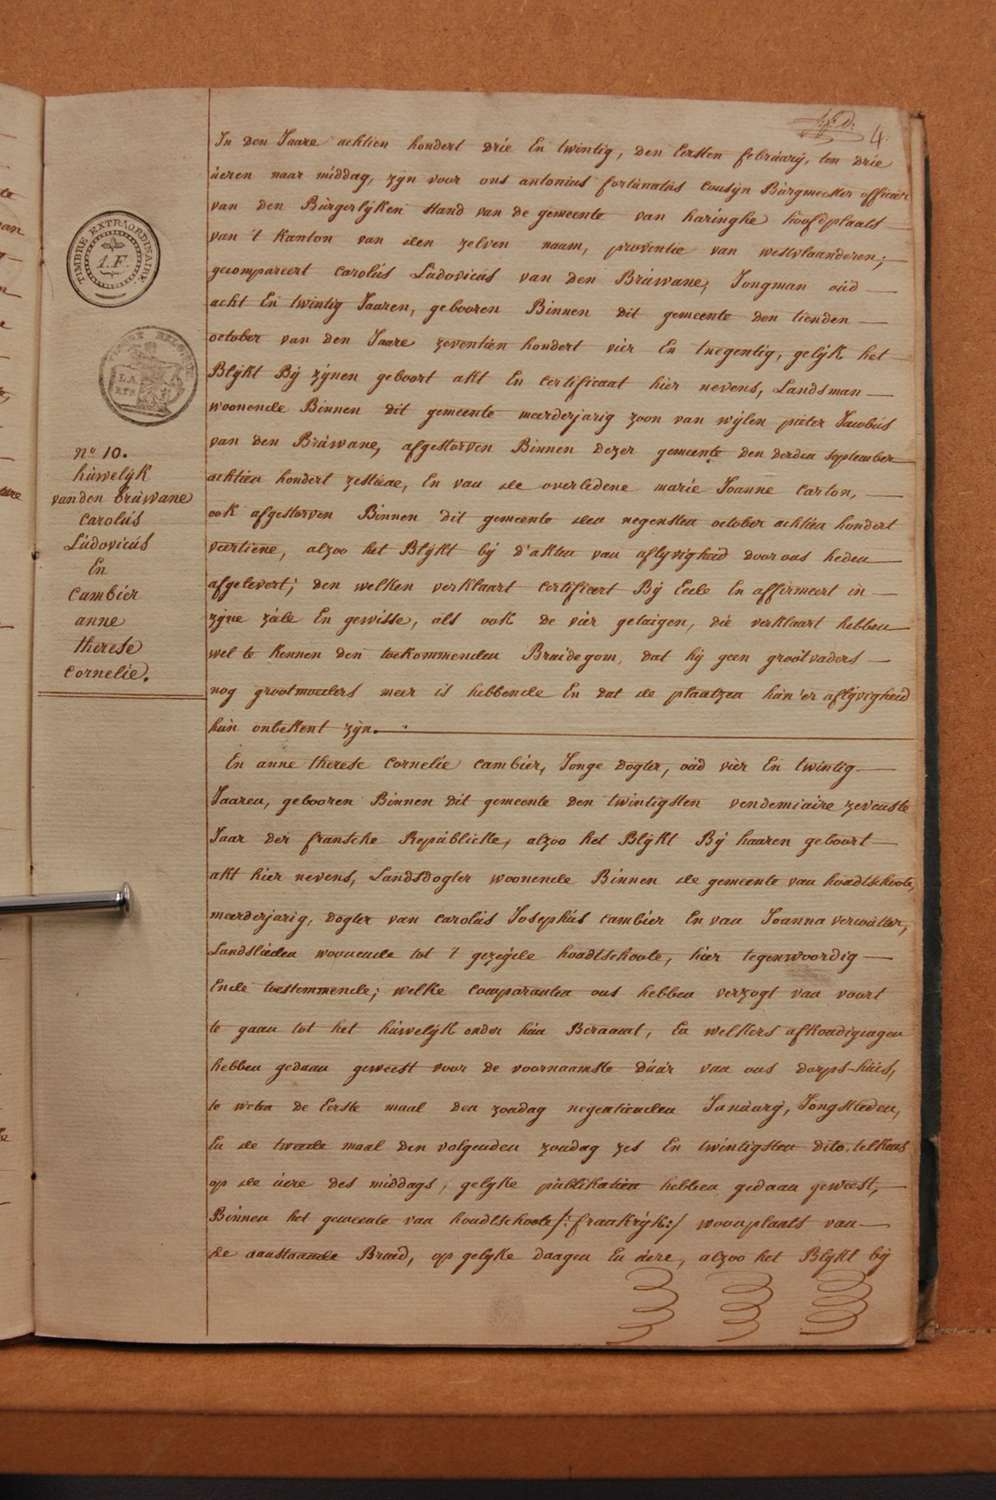 4.
TIMBRE EXTRAORDINAIRE
1.F.
N.º 10.
húwelijk
vanden brúwane
Carolús
Lúdovicús
En
Cambier
anne
therese
Cornelie.
In den Jaare achtien hondert drie En twintig, den Eersten febrúarÿ, ten drie
úeren naar middag, zÿn voor ons antonius fortúnatús Cousÿn Búrgmeester officier
van den Búrgerlÿken stand van de gemeente van haringhe hoofdplaats
van 't Kanton van den zelven naam, proventie van westvlaanderen;
gecompareert Carolús Lúdovicús van den Brúwane, Jongman oúd
acht En twintig Jaaren, gebooren Binnen dit gemeente den tienden
october van den Jaare zeventien hondert vier En tnegentig, gelÿk het
Blÿkt Bÿ zÿnen geboort akt En Certificaat hier nevens, Landsman
woonende Binnen dit gemeente meerderjarig zoon van wÿlen pieter Jacobús
van den Brúwane, afgestorven Binnen dezer gemeente den derden september
achtien hondert zestiene, En van de overledene marie Joanne Carton,
ook afgestorven Binnen dit gemeente den negensten october achtien hondert
veertiene, alzoo het Blÿkt bÿ d'akten van aflÿvigheid door ons heden
afgelevert; den welken verklaart Certificeert Bÿ Eede En affirmeert in
zÿne ziele En gewisse, als ook de vier getuigen, die verklaart hebben
wel te kennen den toekommenden Bruidegom, dat hÿ geen grootvaders
nog grootmoeders meer is hebbende En dat de plaatzen hún'er aflÿvigheid
hún onbekent zÿn.
En anne therese Cornelie Cambier, Jonge dogter, oúd vier En twintig
Jaaren, gebooren Binnen dit gemeente den twintigsten vendemiaire zevenste
Jaar der fransche Repúblicke, alzoo het Blÿkt Bÿ haaren geboort
akt hier nevens, Landsdogter woonende Binnen de gemeente van hondtschoote,
meerderjarig, dogter van Carolús Josephús Cambier En van Joanna verwatter,
Landslieden woonende tot 't gezeÿde hondtschoote, hier tegenwoordig
Ende toestemmende; welke Comparanten ons hebben verzogt van voort
te gaan tot het húwelÿk onder hún Beraamt, En welkers afkondigingen
hebben gedaan geweest voor de voornaamste dúúr van ons dorps-húis,
te weten de Eerste maal den zondag negentienden Janúarÿ, Jongstleden,
En de tweede maal den volgenden zondag zes En twintigsten dito, telkens
op de úere des middags, gelÿke públikatien hebben gedaan geweest,
Binnen het gemeente van hondtschoote /: frankrÿk :/ woonplaats van
de aanstaande Bruid, op gelÿke daagen En úere, alzoo het Blÿkt bÿ